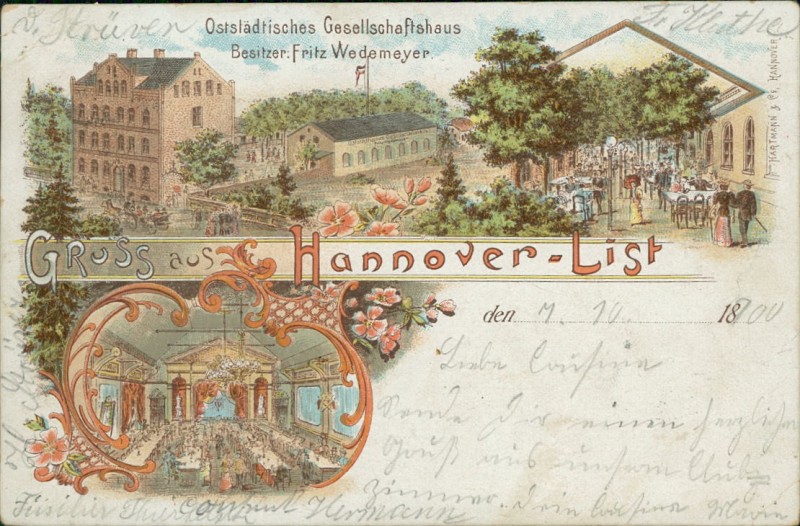 Oststädtisches Gesellschaftshaus
Besitzer: Fritz Wedemeyer.
HARTMANN & Cie, HANNOVER
Gruss aus Hannover-List
den 7. 10. 1900
Liebe Cousine
Sende Dir einen herzlichen
Gruß aus unserm Club-
zimmer. Dein Cousine Marie
Hermann